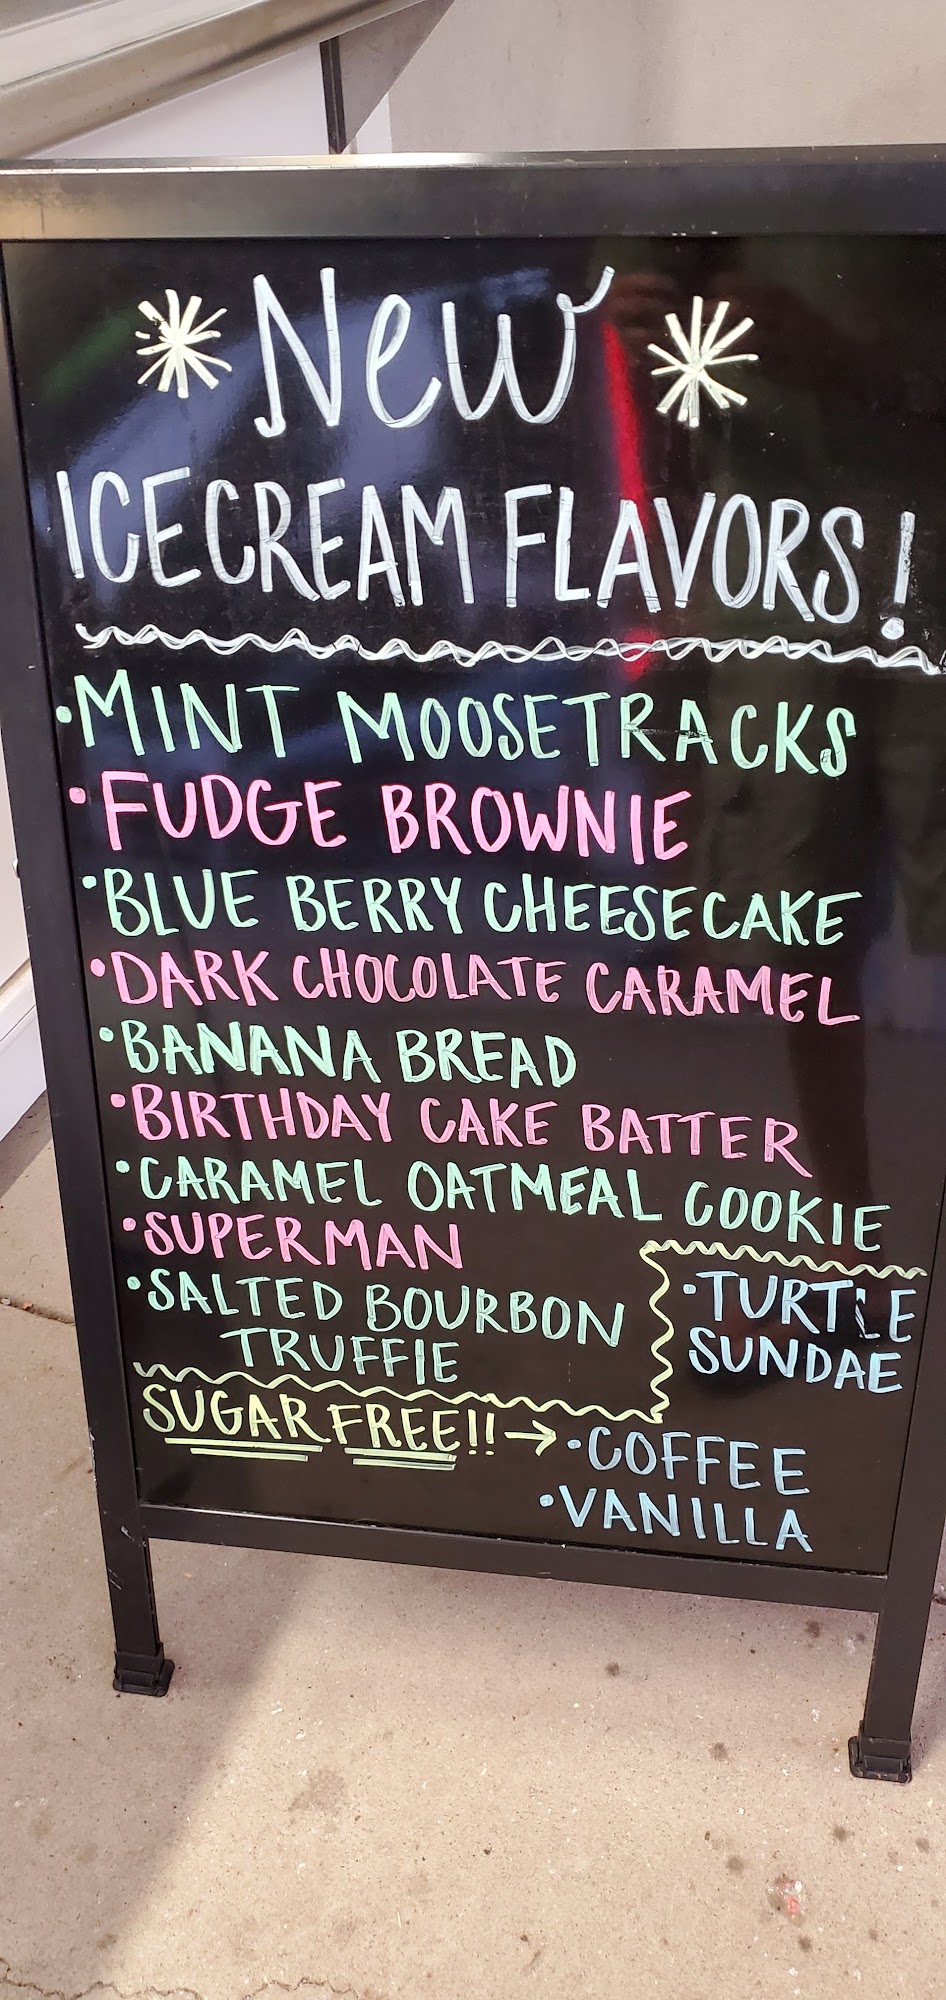 * New *
ICE CREAM FLAVORS!
• MINT MOOSETRACKS
• FUDGE BROWNIE
• BLUE BERRY CHEESECAKE
• DARK CHOCOLATE CARAMEL
• BANANA BREAD
• BIRTHDAY CAKE BATTER
• CARAMEL OATMEAL COOKIE
• SUPERMAN
• SALTED BOURBON
TRUFFLE
• TURTLE
SUNDAE
SUGAR FREE!! →
• COFFEE
• VANILLA